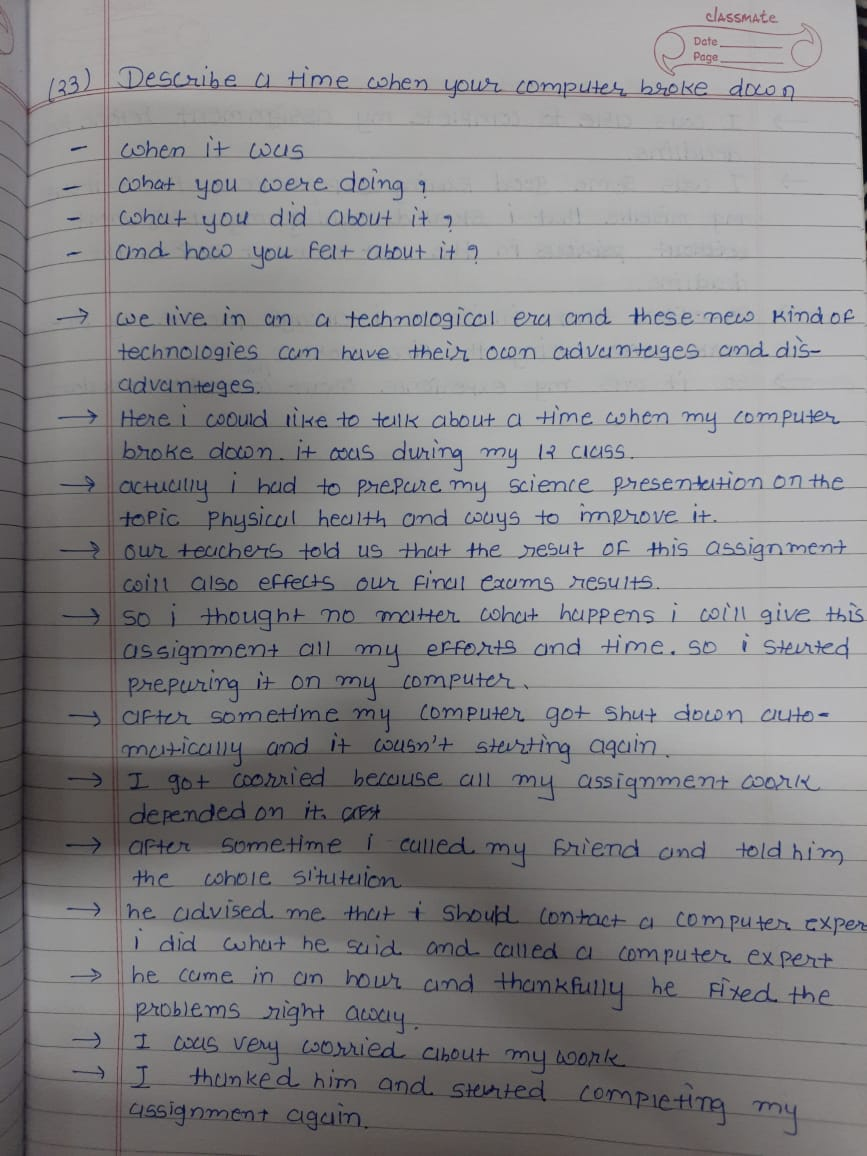 classmate
Date
Page
(33) Describe a time when your computer broke down
- when it was
- what you were doing?
- what you did about it?
- and how you felt about it?
→ we live in an a technological era and these new kind of
technologies can have their own advantages and dis-
advantages.
→ Here i would like to talk about a time when my computer
broke down. it was during my 12 class.
→ actually i had to prepare my science presentation on the
topic physical health and ways to improve it.
→ our teachers told us that the resut of this assignment
will also effects our final exams results.
→ so i thought no matter what happens i will give this
assignment all my efforts and time. so i started
preparing it on my computer.
→ after sometime my computer got shut down auto-
matically and it wasn't starting again.
→ I got worried because all my assignment work
depended on it.
→ after sometime i called my friend and told him
the whole situtaion
→ he advised me that i should contact a computer exper
i did what he said and called a computer expert
→ he came in an hour and thankfully he fixed the
problems right away.
→ I was very worried about my work
→ I thanked him and started completing my
assignment again.